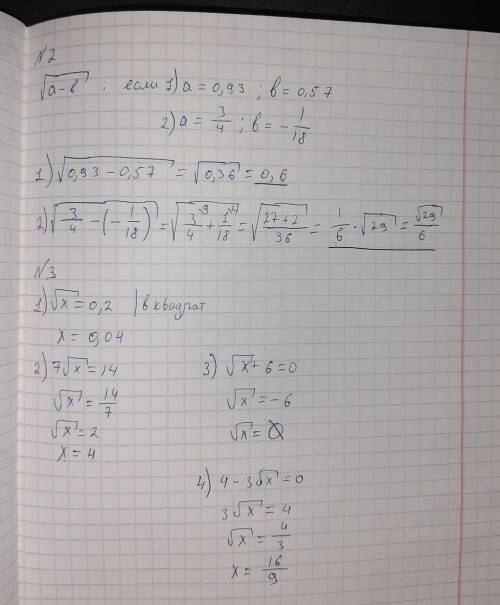 №2
√(a-в), если 1) a = 0,93 ; в = 0,57
2) a = 3/4 ; в = -1/18
1) √(0,93 - 0,57) = √(0,36) = 0,6
2) √(3/4 - (-1/18)) = √(3/4 + 1/18) = √((27+2)/36) = 1/6 · √29 = √29/6
№3
1) √x = 0,2 | в квадрат
x = 0,04
2) 7√x = 14
√x = 14/7
√x = 2
x = 4
3) √x + 6 = 0
√x = -6
√x = ∅
4) 4 - 3√x = 0
3√x = 4
√x = 4/3
x = 16/9